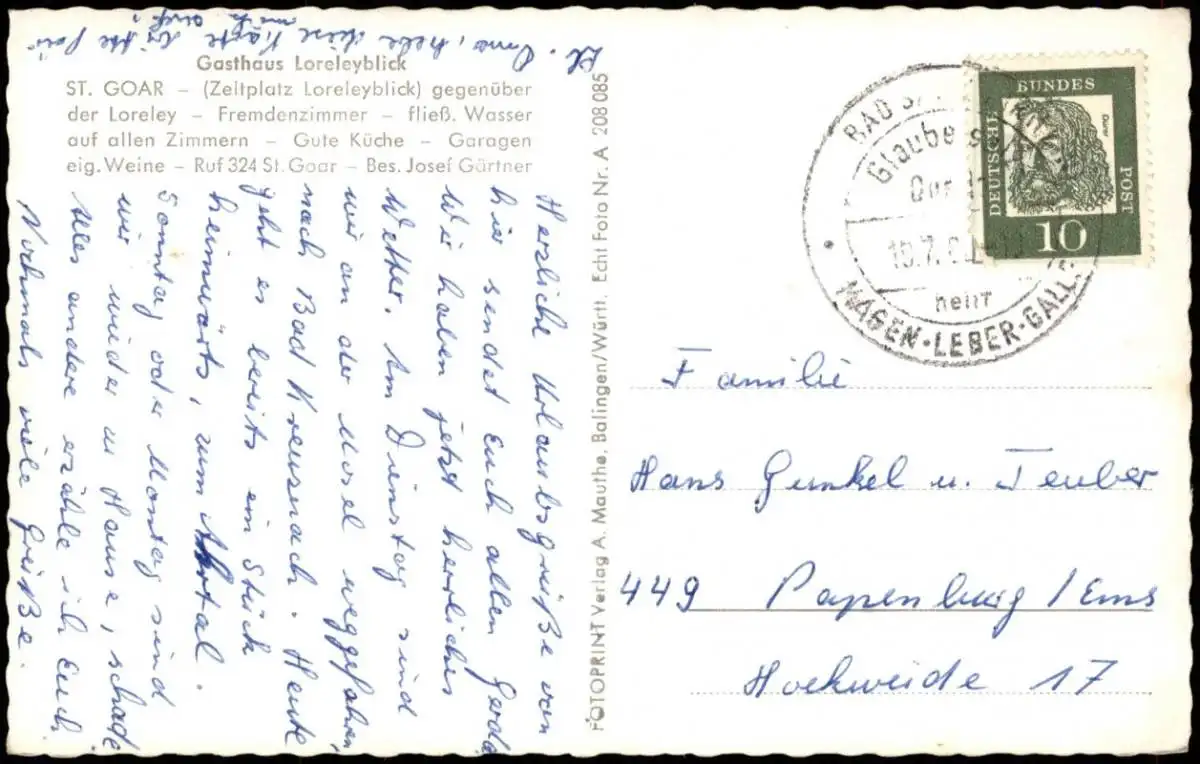 Kl. Oma, hebe diese Karte bitte für
mich auf!
Gasthaus Loreleyblick
ST. GOAR – (Zeltplatz Loreleyblick) gegenüber
der Loreley – Fremdenzimmer – fließ. Wasser
auf allen Zimmern – Gute Küche – Garagen
eig. Weine – Ruf 324 St. Goar – Bes. Josef Gärtner
Herzliche Urlaubsgrüße von
hier sendet Euch allen Gerold
Wir haben jetzt herrliches
Wetter. Am Dienstag sind
wir an der Mosel weggefahren
nach Bad Kreuznach. Heute
geht es bereits ein Stück
heimwärts, zum Ahrtal.
Sonntag oder Montag sind
wir wieder zu Hause, schade
Alles andere erzähle ich Euch
Nochmals viele Grüße.
FOTOPRINT Verlag A. Mauthe, Balingen/Württ. Echt Foto Nr. A 208085
BAD
Glaube
10.7.
heilt
MAGEN·LEBER·GALLE
DEUTSCHE
BUNDES
POST
Dürer
10
Familie
Hans Gunkel u. Teuber
449 Papenburg/Ems
Hockweide 17